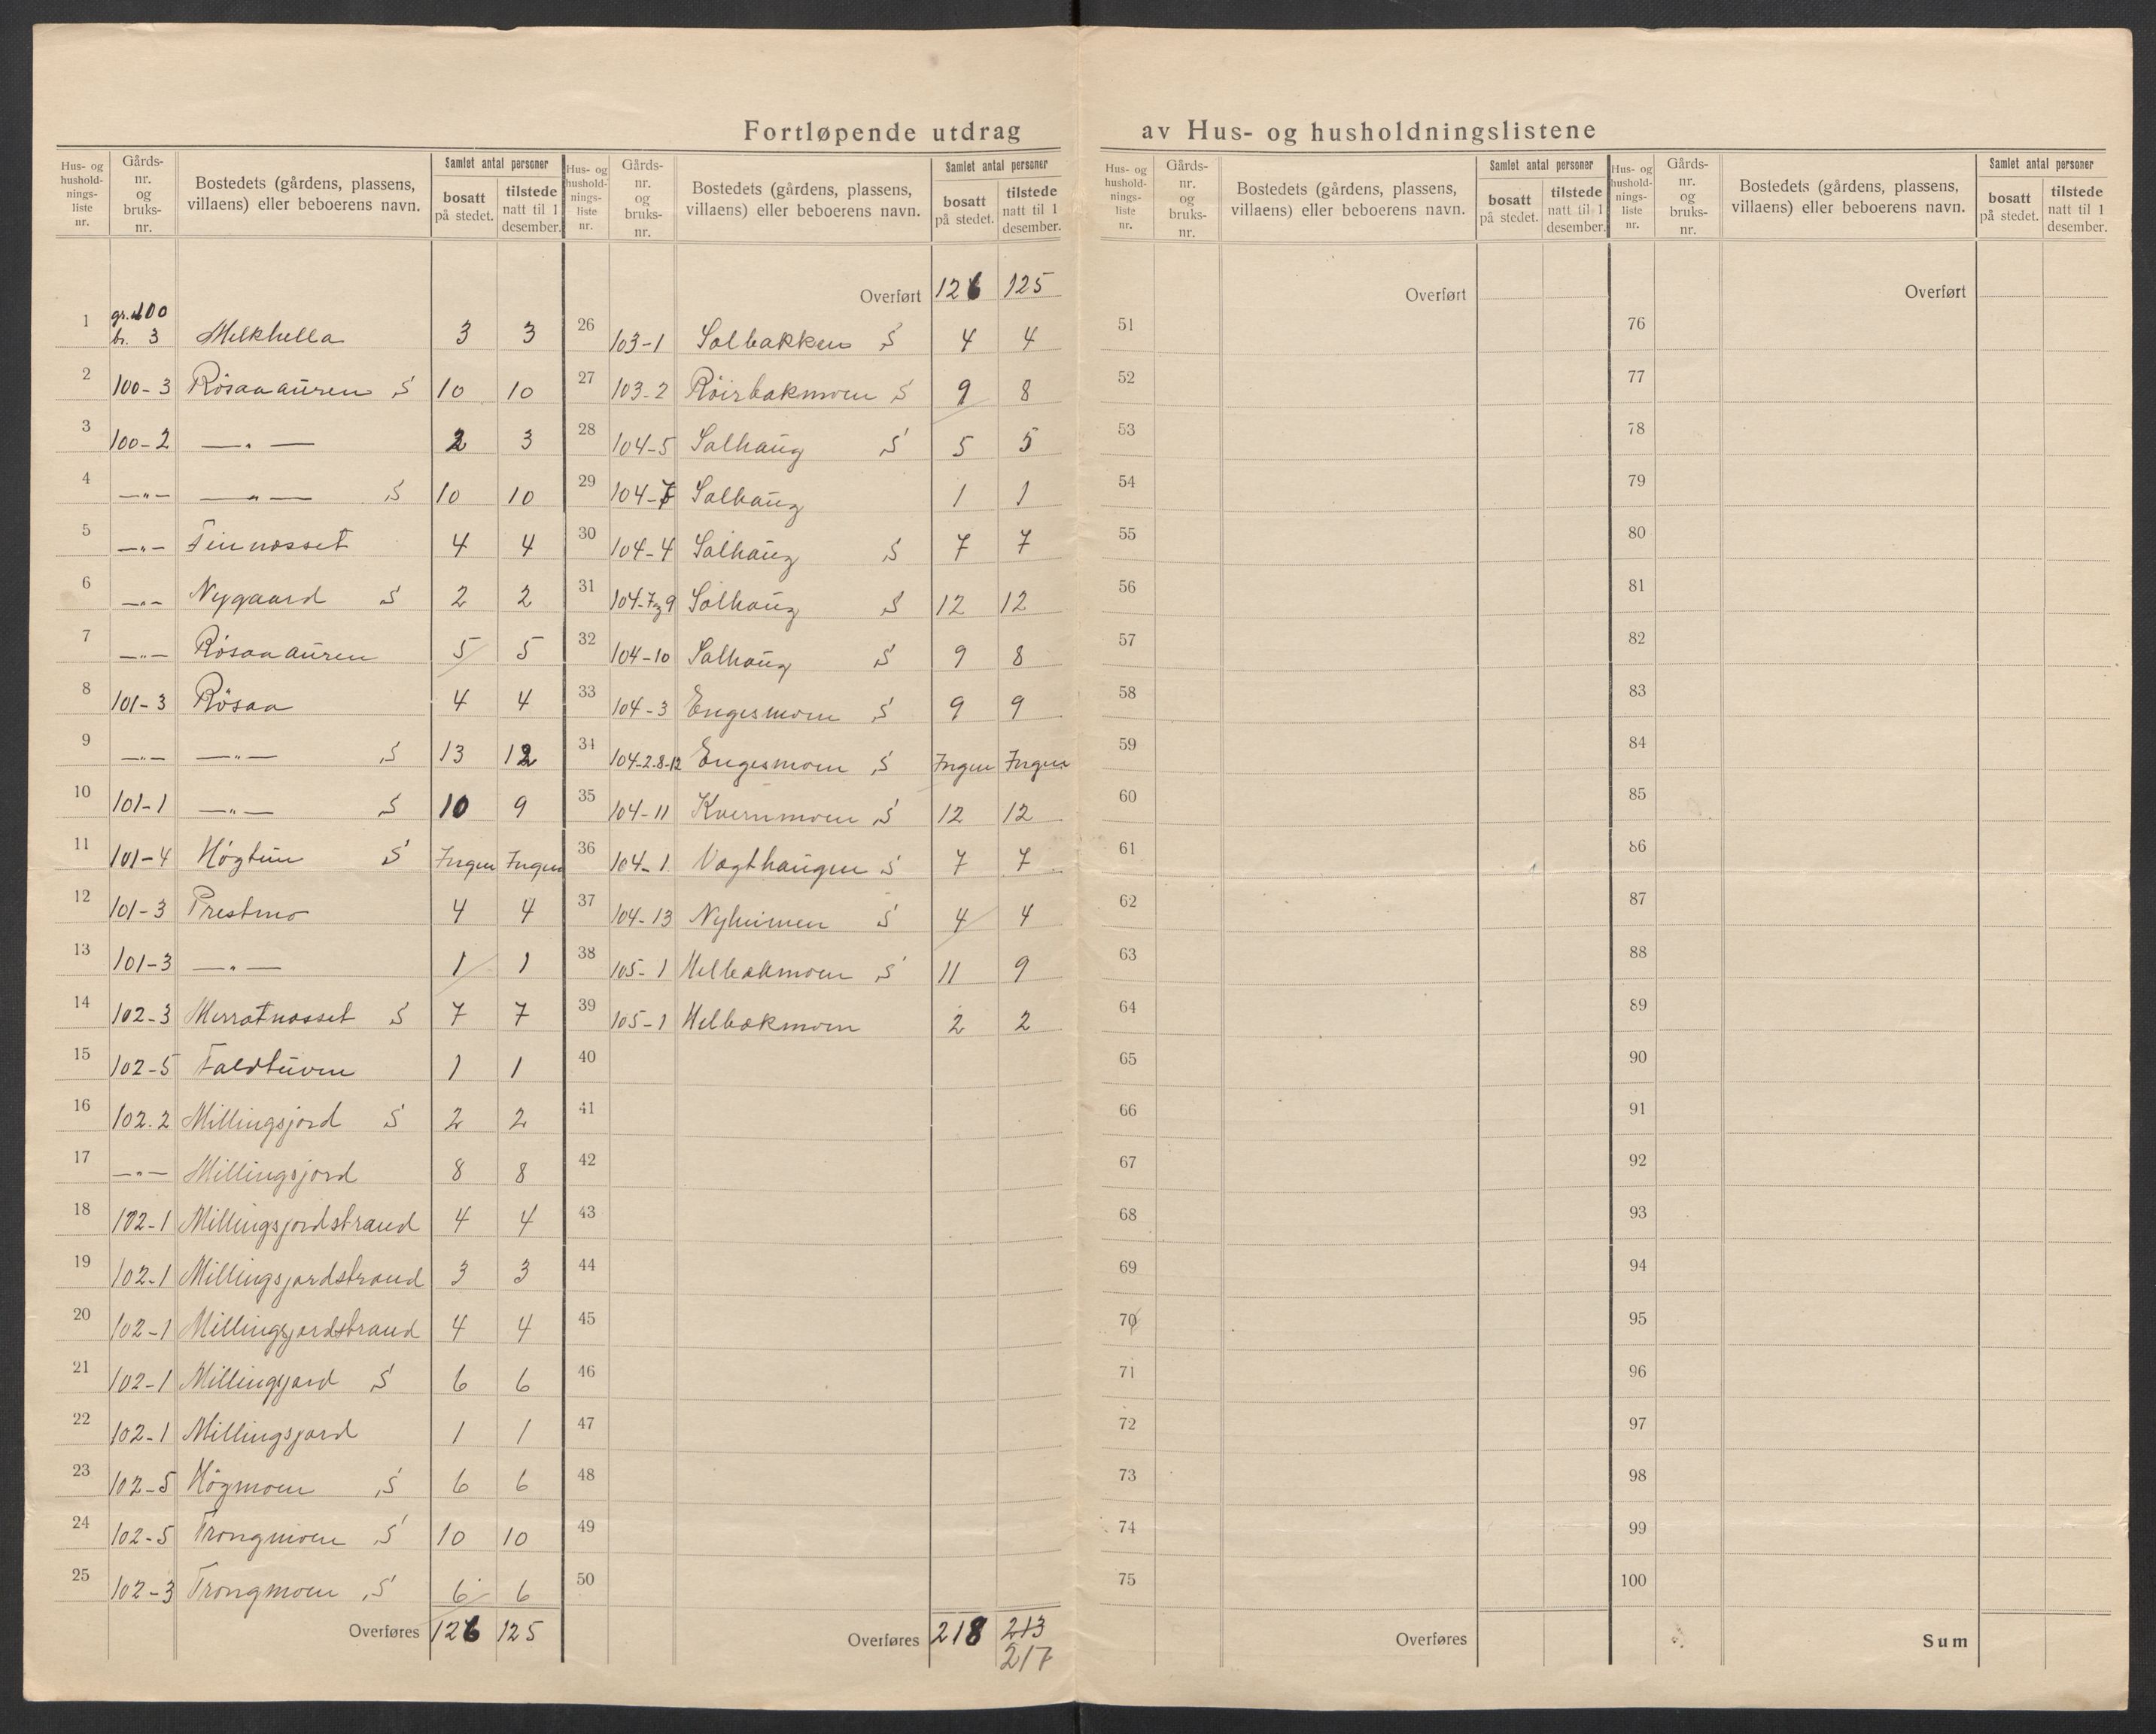 Fortløpende utdrag av Hus- og husholdningslistene
Hus- og husholdnings-liste nr. | Gårds-nr. og bruks-nr. | Bostedets (gårdens, plassens, villaens) eller beboerens navn. | Samlet antal personer | bosatt på stedet. | tilstede natt til 1 desember.
1 gr. 100 br. 3 Melkhella 3 3
2 100-3 Rösaaauren S 10 10
3 100-2 —„— 2 3
4 —„— —„— S 10 10
5 —„— Finnesset 4 4
6 —„— Nygaard S 2 2
7 —„— Rösaaauren 5 5
8 101-3 Rösaa 4 4
9 —„— —„— S 13 12
10 101-1 —„— S 10 9
11 101-4 Högtun S Ingen Ingen
12 101-3 Prestmo 4 4
13 101-3 —„— 1 1
14 102-3 Merratnesset S 7 7
15 102-5 Faldtuven 1 1
16 102.2 Millingsjord S 2 2
17 —„— Millingsjord 8 8
18 102-1 Millingsjordstrand 4 4
19 102-1 Millingsjordstrand 3 3
20 102-1 Millingsjordstrand 4 4
21 102-1 Millingsjord S 6 6
22 102-1 Millingsjord 1 1
23 102-5 Högmoen S 6 6
24 102-5 Trongmoen S 10 10
25 102-3 Trongmoen S 6 6
Overføres 126 125
Hus- og husholdnings-liste nr. | Gårds-nr. og bruks-nr. | Bostedets (gårdens, plassens, villaens) eller beboerens navn. | Samlet antal personer | bosatt på stedet. | tilstede natt til 1 desember.
Overført 126 125
26 103-1 Solbakken S 4 4
27 103-2 Röirbakmoen S 9 8
28 104-5 Solhaug S 5 5
29 104- Solhaug 1 1
30 104-4 Solhaug S 7 7
31 104-7 og 9 Solhaug S 12 12
32 104-10 Solhaug S 9 8
33 104-3 Engesmoen S 9 9
34 104-2-8-12 Engesmoen S Ingen Ingen
35 104-11 Kvernmoen S 12 12
36 104-1 Vagthaugen S 7 7
37 104-13 Nyheimen S 4 4
38 105-1 Helbekmoen S 11 9
39 105-1 Helbekmoen 2 2
40
41
42
43
44
45
46
47
48
49
50
Overføres 218 213
217
Hus- og husholdnings-liste nr. | Gårds-nr. og bruks-nr. | Bostedets (gårdens, plassens, villaens) eller beboerens navn. | Samlet antal personer | bosatt på stedet. | tilstede natt til 1 desember.
Overført
51
52
53
54
55
56
57
58
59
60
61
62
63
64
65
66
67
68
69
70
71
72
73
74
75
Overføres
Hus- og husholdnings-liste nr. | Gårds-nr. og bruks-nr. | Bostedets (gårdens, plassens, villaens) eller beboerens navn. | Samlet antal personer | bosatt på stedet. | tilstede natt til 1 desember.
Overført
76
77
78
79
80
81
82
83
84
85
86
87
88
89
90
91
92
93
94
95
96
97
98
99
100
Sum